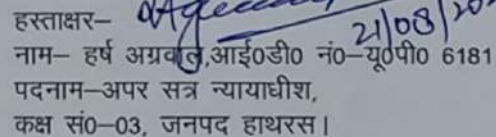 हस्ताक्षर–
21/08/20
नाम– हर्ष अग्रवाल,आई0डी0 नं0–यू0पी0 6181
पदनाम–अपर सत्र न्यायाधीश,
कक्ष सं0–03, जनपद हाथरस।